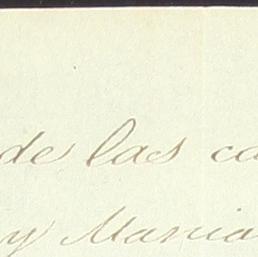 de las ca
y Maria